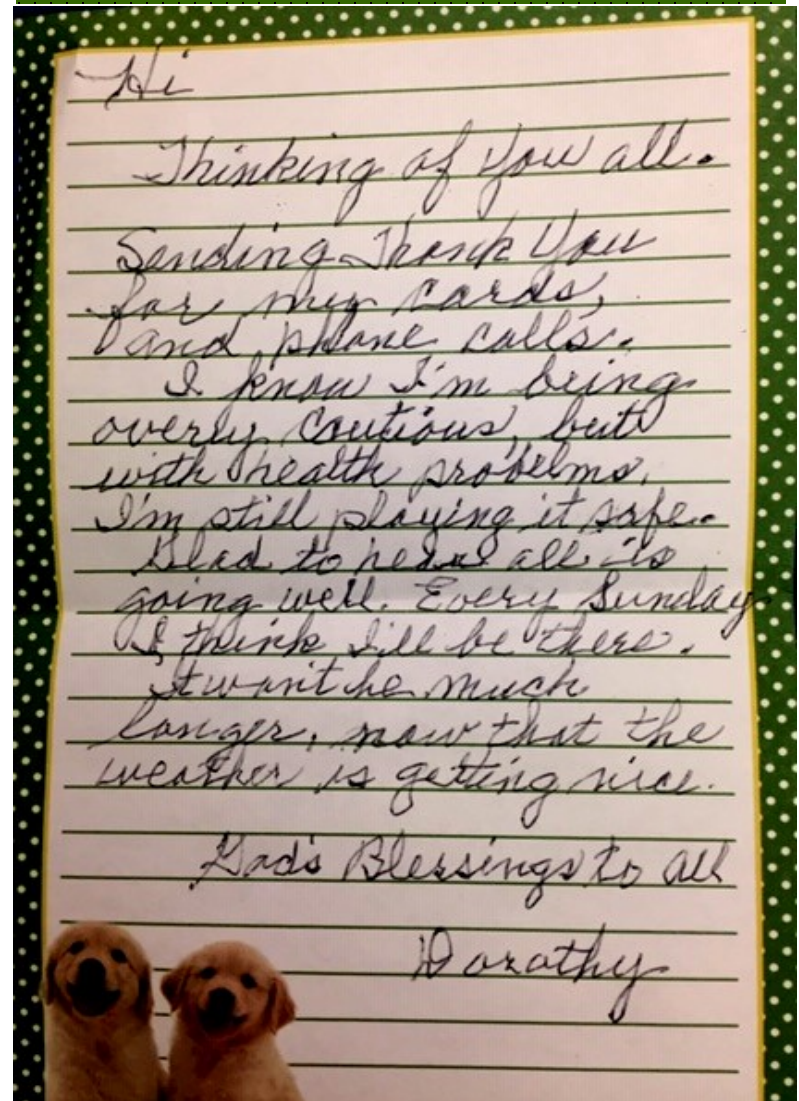 Hi
Thinking of You all.
Sending Thank You
for my cards,
and phone calls.
I know I'm being
overly coutious, but
with health probelms,
I'm still playing it safe.
Glad to hear all is
going well. Every Sunday
I think I'll be there.
It won't be much
longer, now that the
weather is getting nice.
God's Blessings to all
Dorothy